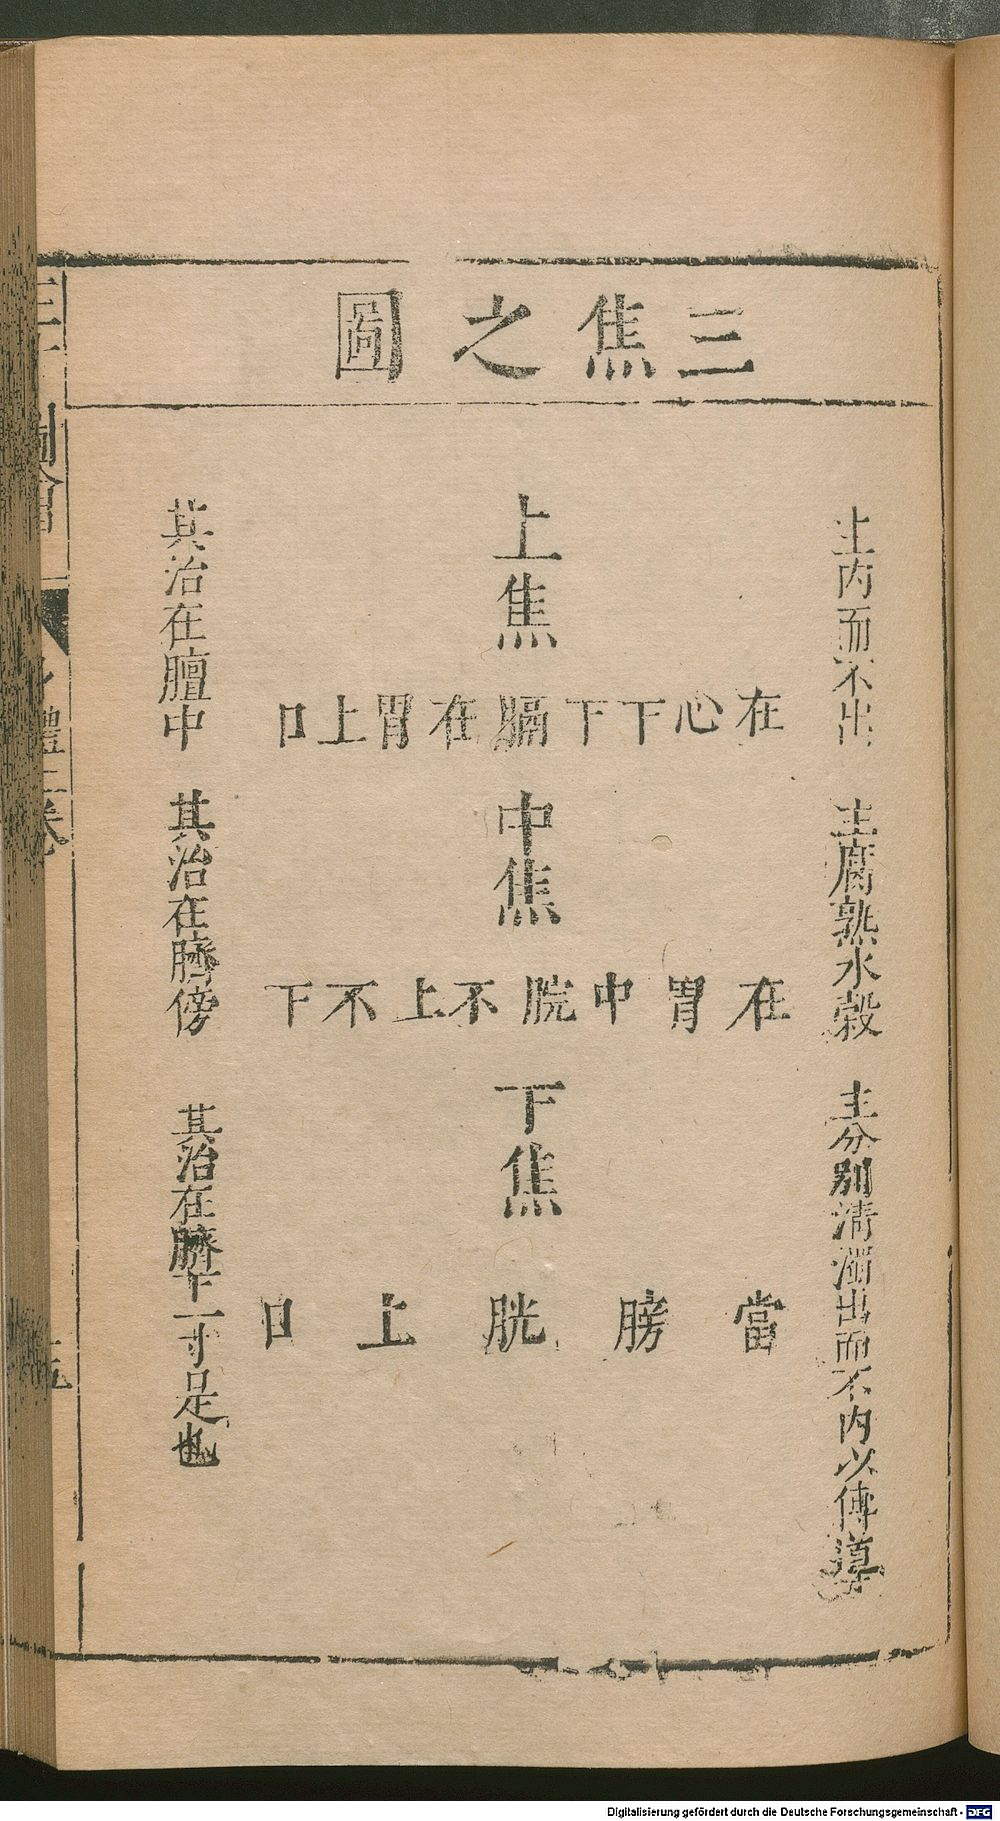 三焦之圖
主內而不出
主腐熟水穀
主分別清濁出而不內以傳導
上焦
在心下下膈在胃上口
中焦
在胃中脘不上不下
下焦
當膀胱上口
其治在膻中
其治在臍傍
其治在臍下一寸是也
身體二卷
Digitalisierung gefördert durch die Deutsche Forschungsgemeinschaft - DFG